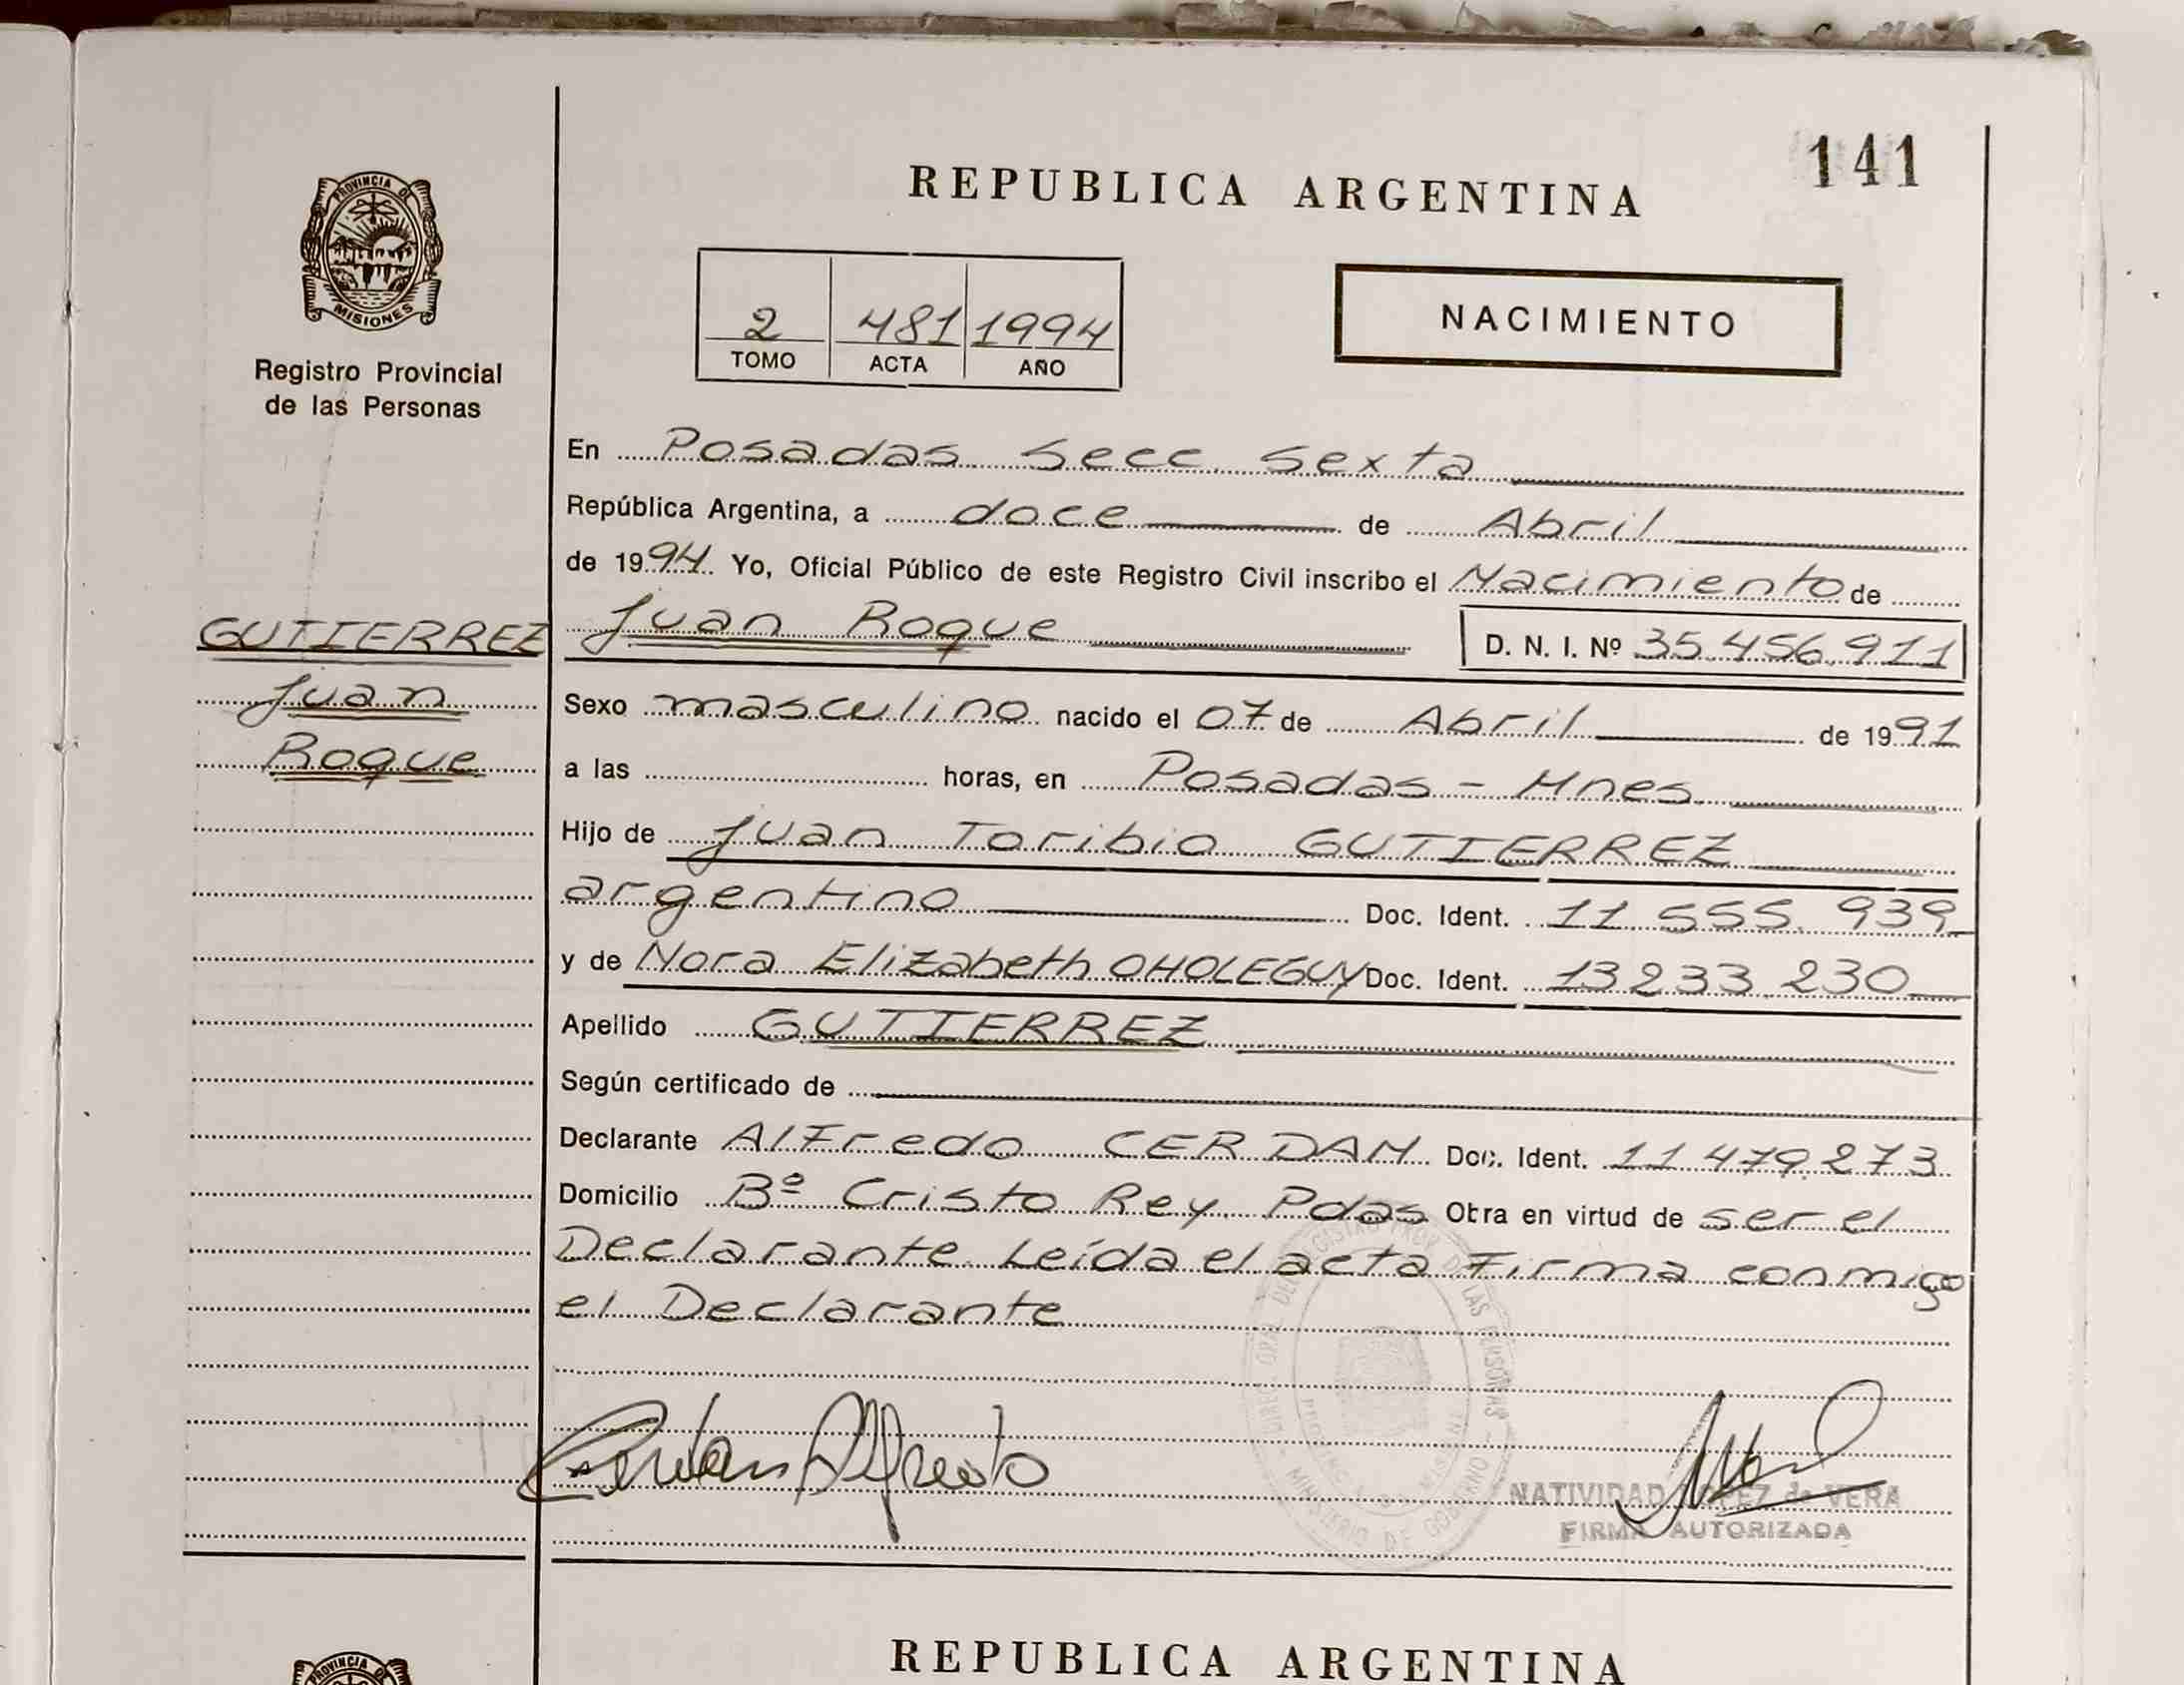 141
REPUBLICA ARGENTINA
PROVINCIA DE
MISIONES
Registro Provincial
de las Personas
2 481 1994
TOMO ACTA AÑO
NACIMIENTO
En Posadas Secc. Sexta
República Argentina, a doce de Abril
de 1994. Yo, Oficial Público de este Registro Civil inscribo el Nacimiento de
Juan Roque D. N. I. Nº 35.456.911
GUTIERREZ
Juan
Roque
Sexo masculino nacido el 07 de Abril de 1991
a las horas, en Posadas - Mnes.
Hijo de Juan Toribio GUTIERREZ
argentino Doc. Ident. 11.555.939
y de Nora Elizabeth OHOLEGUY Doc. Ident. 13233.230
Apellido GUTIERREZ
Según certificado de
Declarante Alfredo CERDAN Doc. Ident. 11.479.273
Domicilio Bº Cristo Rey. Pdas Obra en virtud de ser el
Declarante. Leída el acta Firma conmigo
el Declarante
Cerdan Alfredo
NATIVIDAD LOPEZ de VERA
FIRMA AUTORIZADA
MINISTERIO DE GOBIERNO
REPUBLICA ARGENTINA
PROVINCIA DE